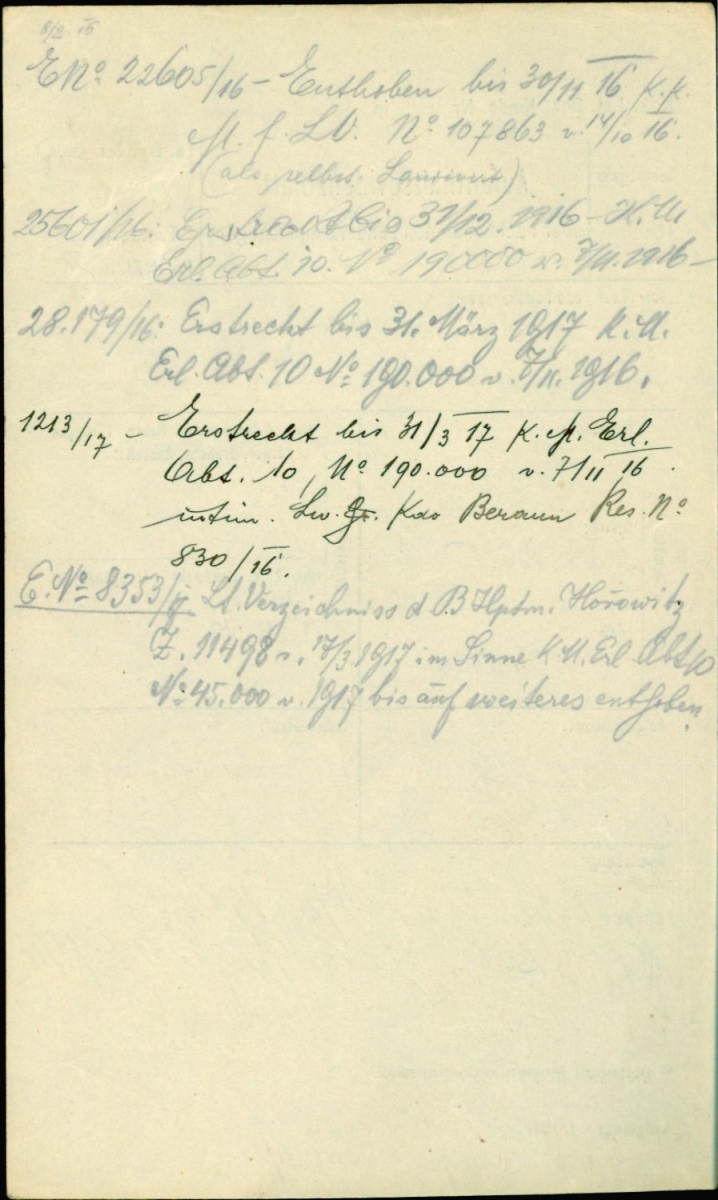 8/2 16
E Nº 22605/16 – Enthoben bis 30/11 16 K.K.
M. f. L.V. Nº 107863 v. 14/10 16.
(als selbst. Landwirt)
25601/16: Erstreckt bis 31/12. 1916 – K.M.
Erl. Abt. 10. Nº 190000 v. 7/11. 1916 –
28.179/16: Erstreckt bis 31. März 1917 K.M.
Erl. Abt. 10 Nº 190.000 v. 7/11. 1916.
1213/17 – Erstreckt bis 31/3 17 K.M. Erl.
Abt. 10, Nº 190.000 v. 7/11 16.
intim. Lw. Gr. Kdo Beraun Res. Nº
830/16.
E. Nº 8353/17 Lt. Verzeichniss d. B. Hptm. Hořowitz
Z. 11498 v. 17/3 1917 im Sinne K.M. Erl. Abt 10
Nº 45.000 v. 1917 bis auf weiteres enthoben.